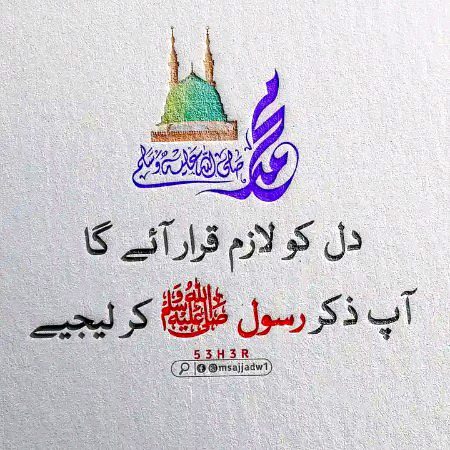 محمد صلى الله عليه وسلم
دل کو لازم قرار آئے گا
آپ ذکر رسول ﷺ کر لیجیے
53H3R
@msajjadw1